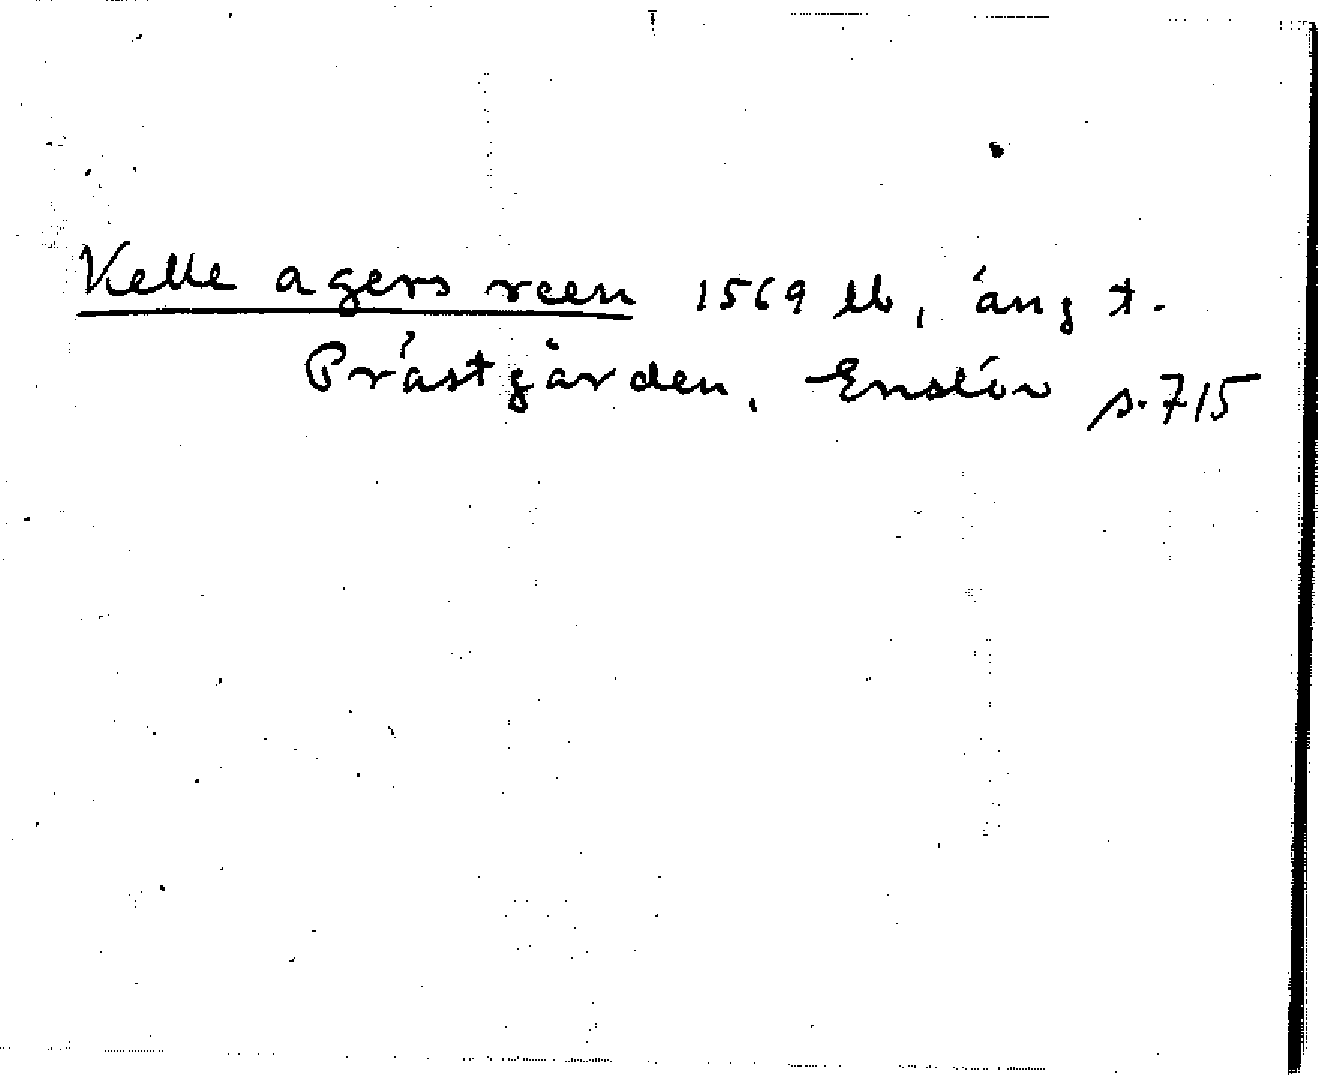 Kelle agers reen 1569 lb, äng t.
Prästgården, Enslöv s.715